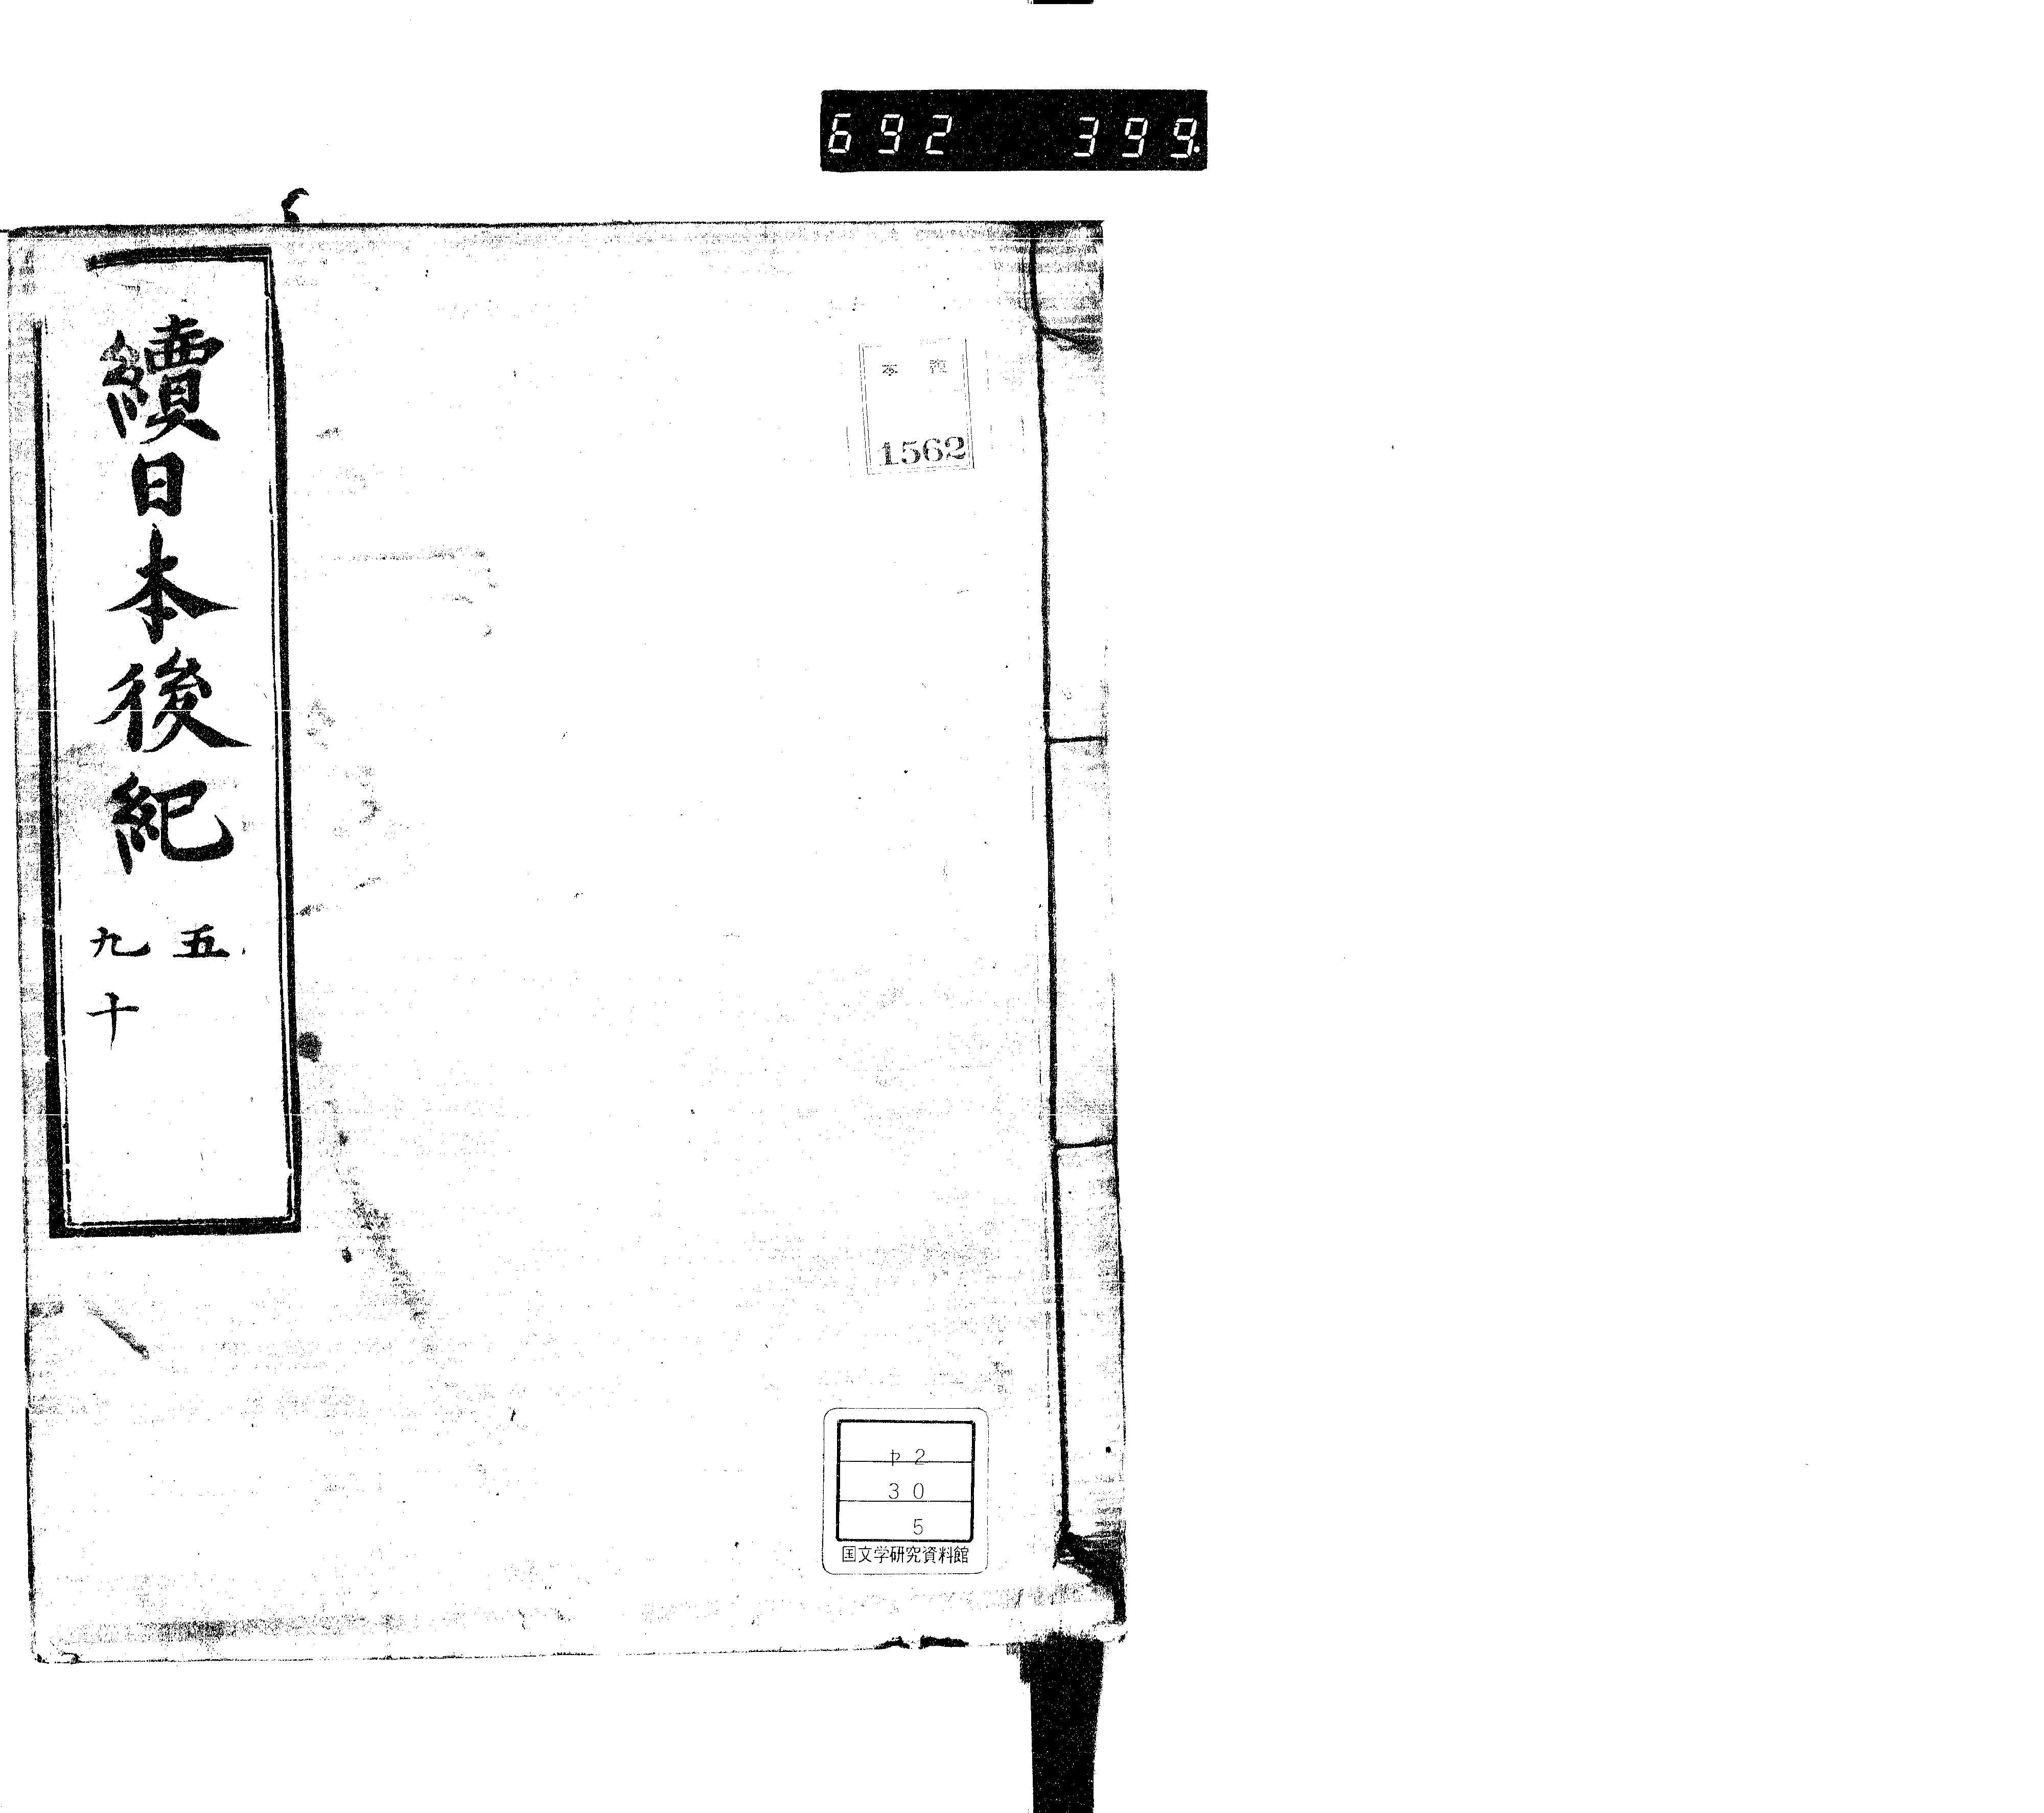 692 399.
續日本後紀
五
九十
1562
ヤ2
30
5
国文学研究資料館